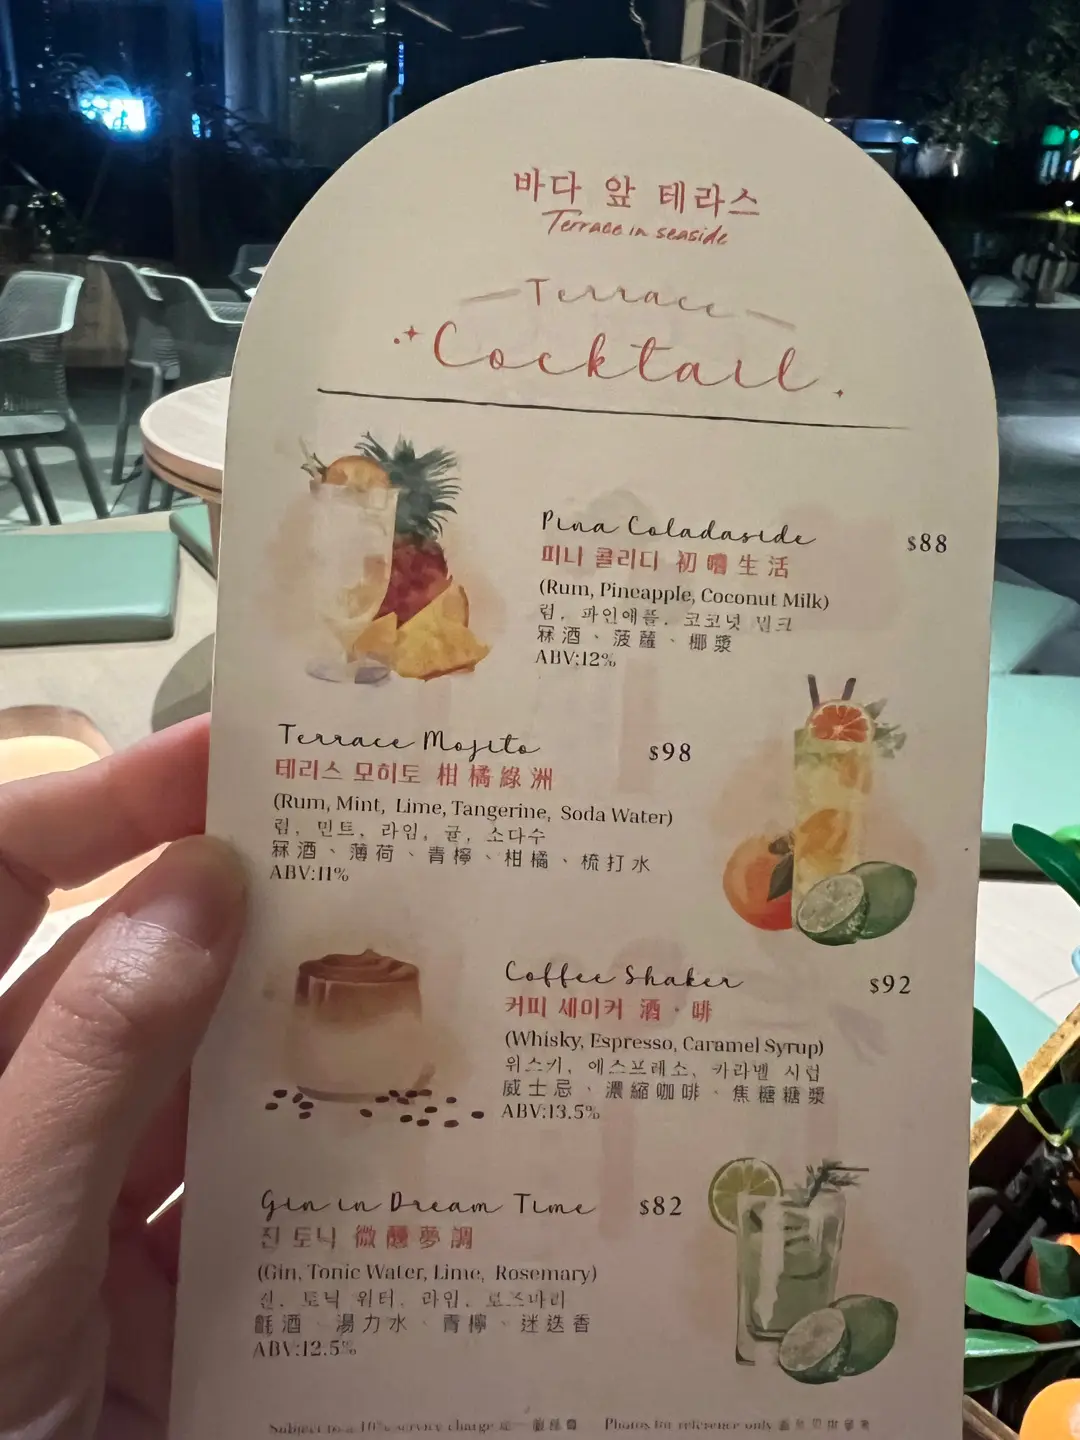 바다 앞 테라스
Terrace in seaside
Terrace
Cocktail
Pina Coladaside
$88
피나 콜리디 初嚐生活
(Rum, Pineapple, Coconut Milk)
럼, 파인애플, 코코넛 밀크
冧酒、菠蘿、椰漿
ABV:12%
Terrace Mojito
$98
테리스 모히토 柑橘綠洲
(Rum, Mint, Lime, Tangerine, Soda Water)
럼, 민트, 라임, 귤, 소다수
冧酒、薄荷、青檸、柑橘、梳打水
ABV:11%
Coffee Shaker
$92
커피 세이커 酒·啡
(Whisky, Espresso, Caramel Syrup)
위스키, 에스프레소, 카라멜 시럽
威士忌、濃縮咖啡、焦糖糖漿
ABV:13.5%
Gin in Dream Time
$82
진 토닉 微醺夢調
(Gin, Tonic Water, Lime, Rosemary)
진, 토닉 워터, 라임, 로즈마리
氈酒、湯力水、青檸、迷迭香
ABV:12.5%
Subject to a 10% service charge
Photos for reference only